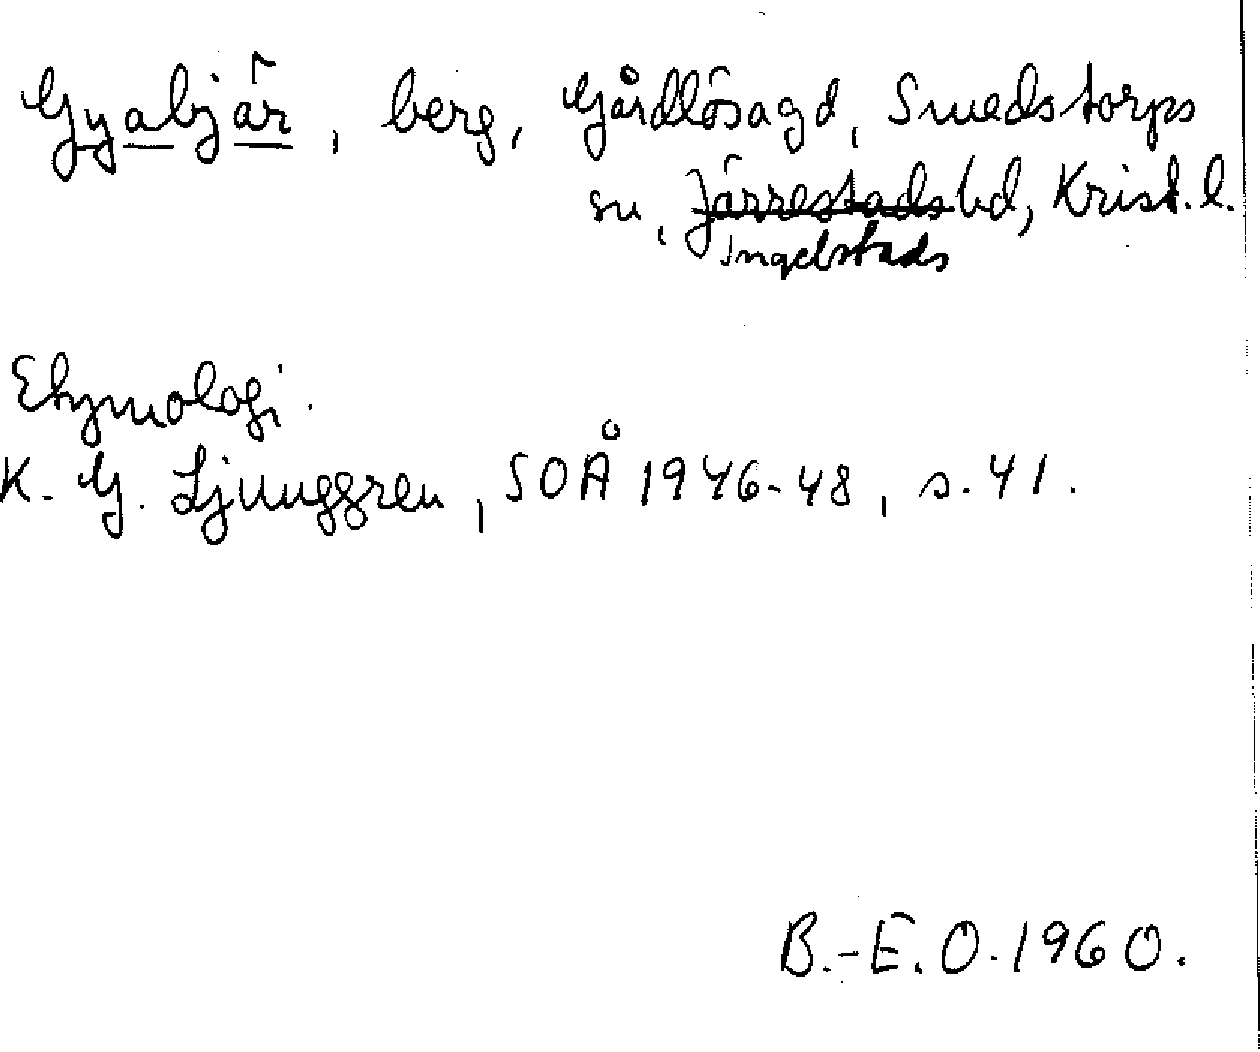 Gyabjär, berg, Gårdlösagd, Smedstorps
sn, Järrestads hd, Krist. l.
Ingelstads
Etymologi.
K. G. Ljunggren, SOÅ 1946-48, s. 41.
B.-E. O. 1960.